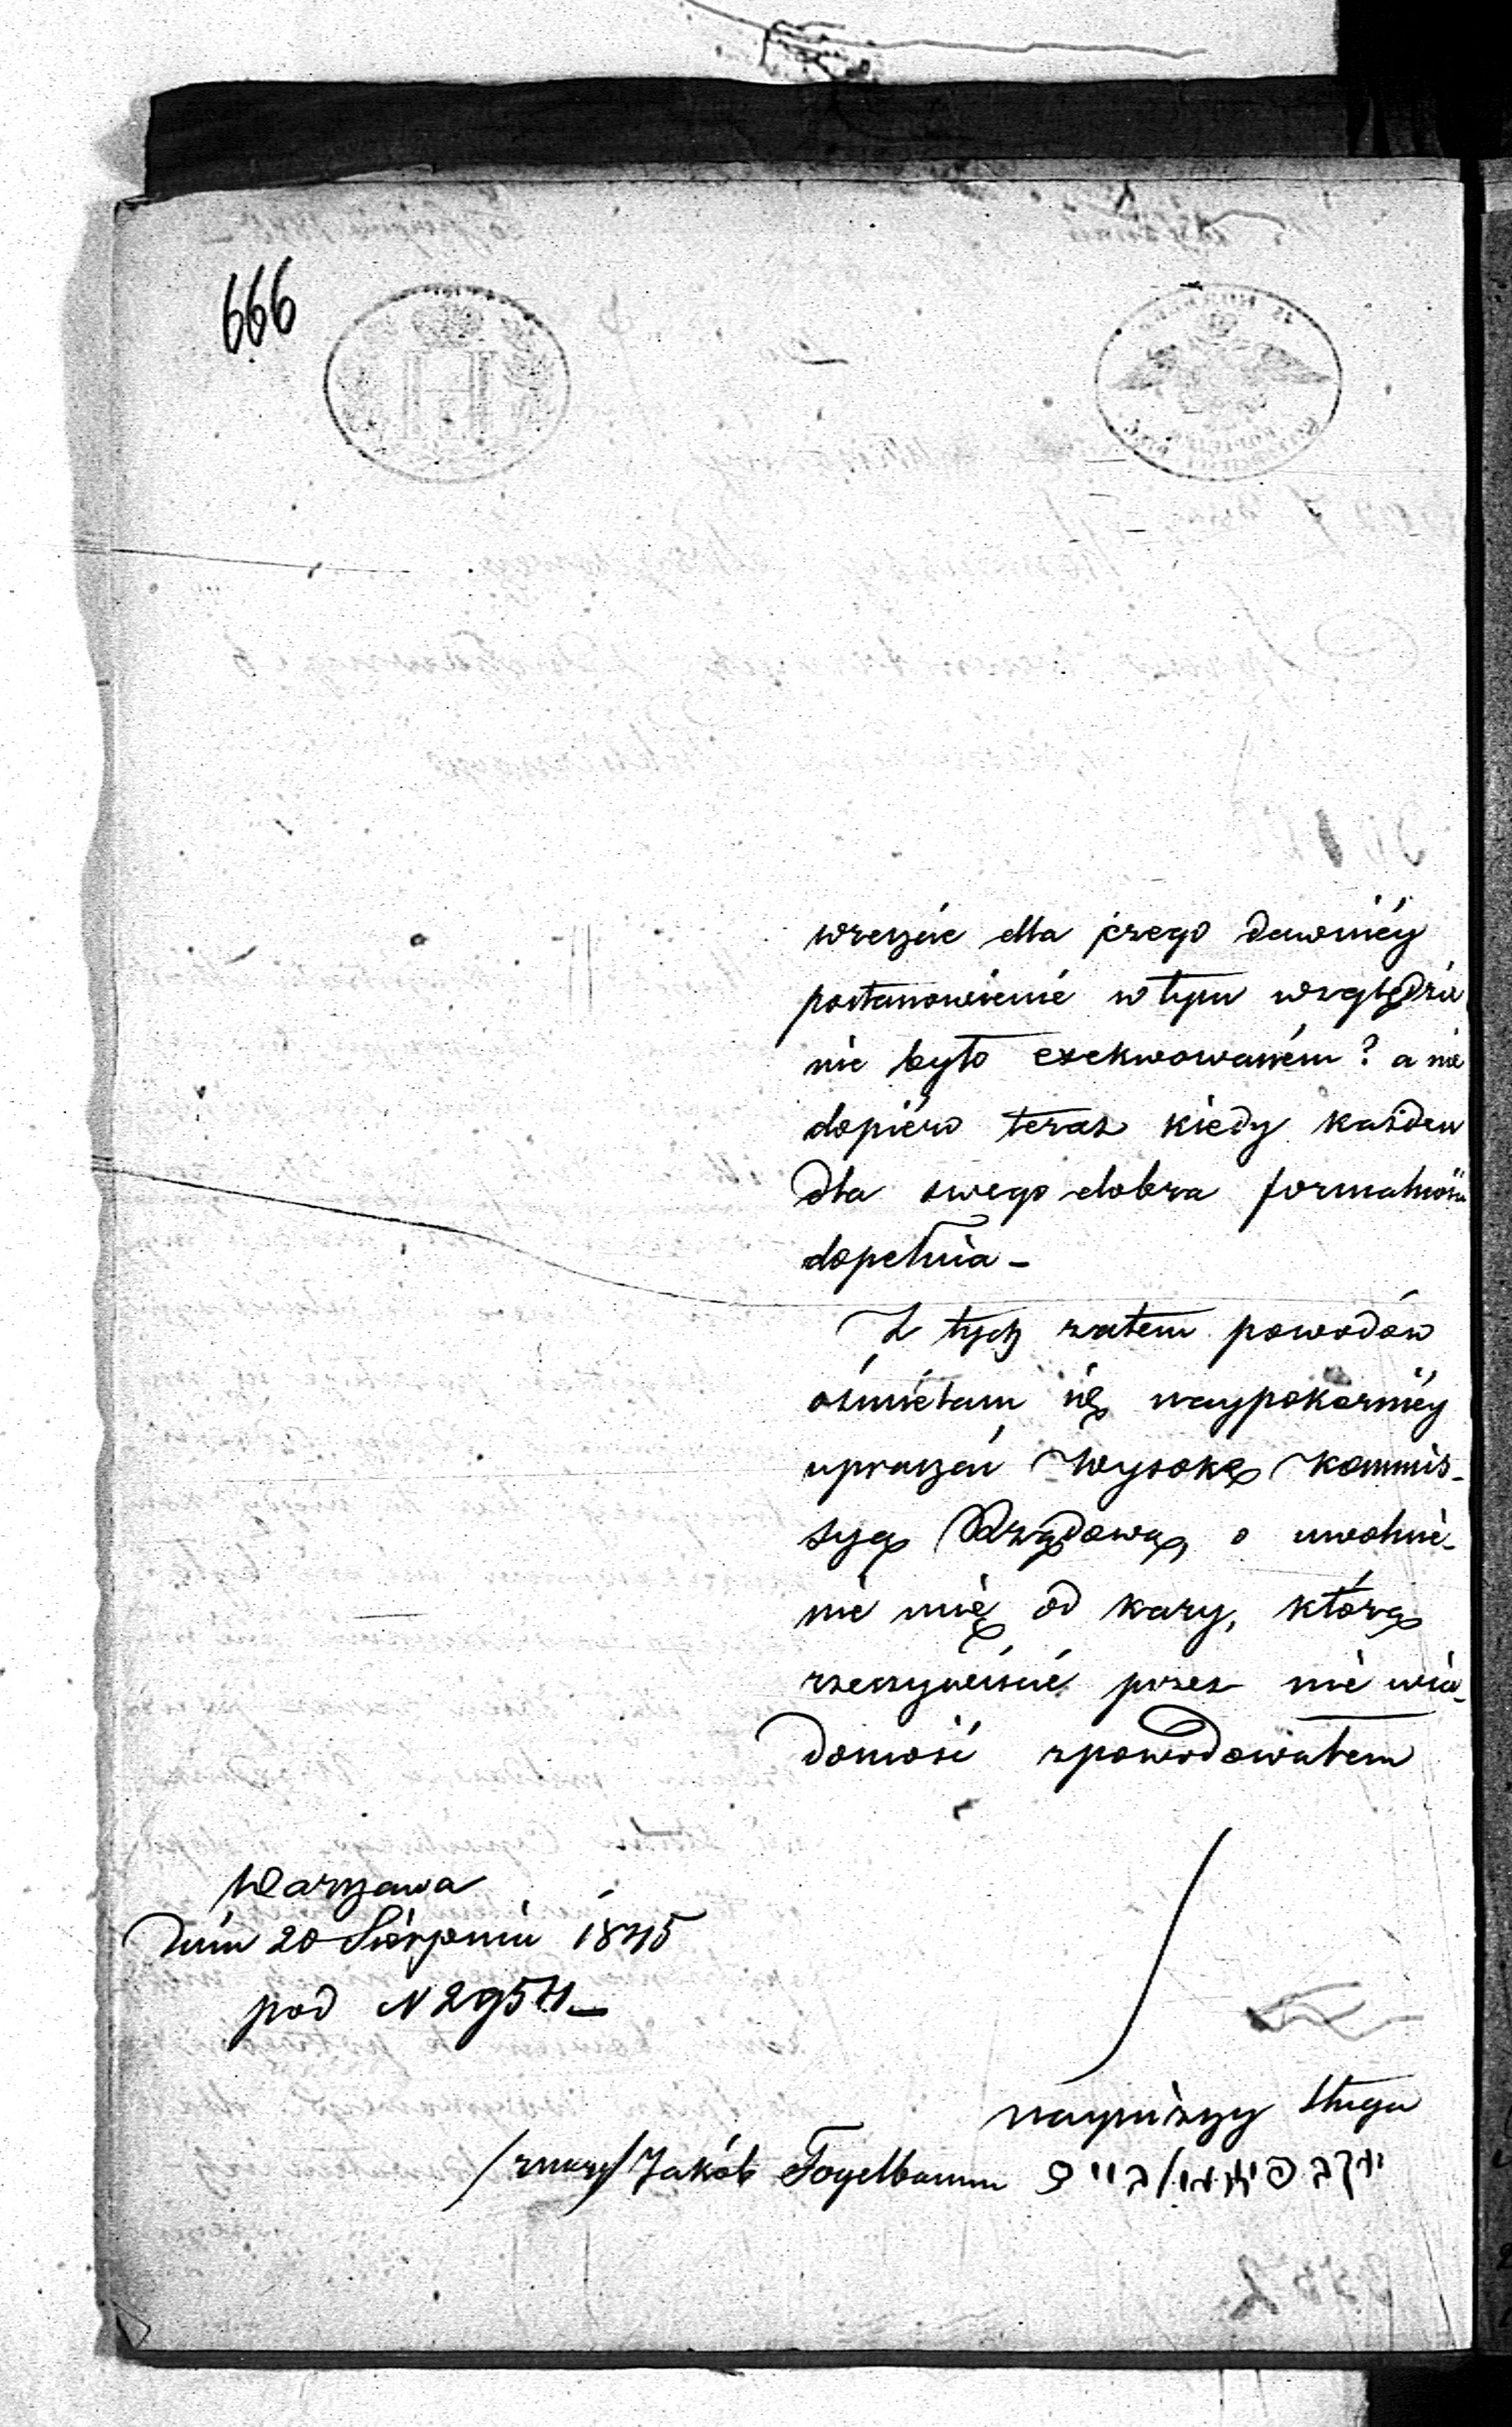 666
wreszcie dla czego dawniéy
postanowienié w tym względzie
nie było exekwowaném? a nie
dopiéro teraz kiedy każden
dla swego dobra formalności
dopełnia -
Z tych zatem powodów
ośmielam się naypokorniéy
upraszać Wysoką Kommis-
syą Rządową, o uwolnie-
nie mię od kary, którą
rzeczywiście przez nie wia-
domość spowodowałem
Warszawa
dnia 20 Sierpnia 1845
pod N
nayniższy sługa
Jakób Fogelbaum יעקב